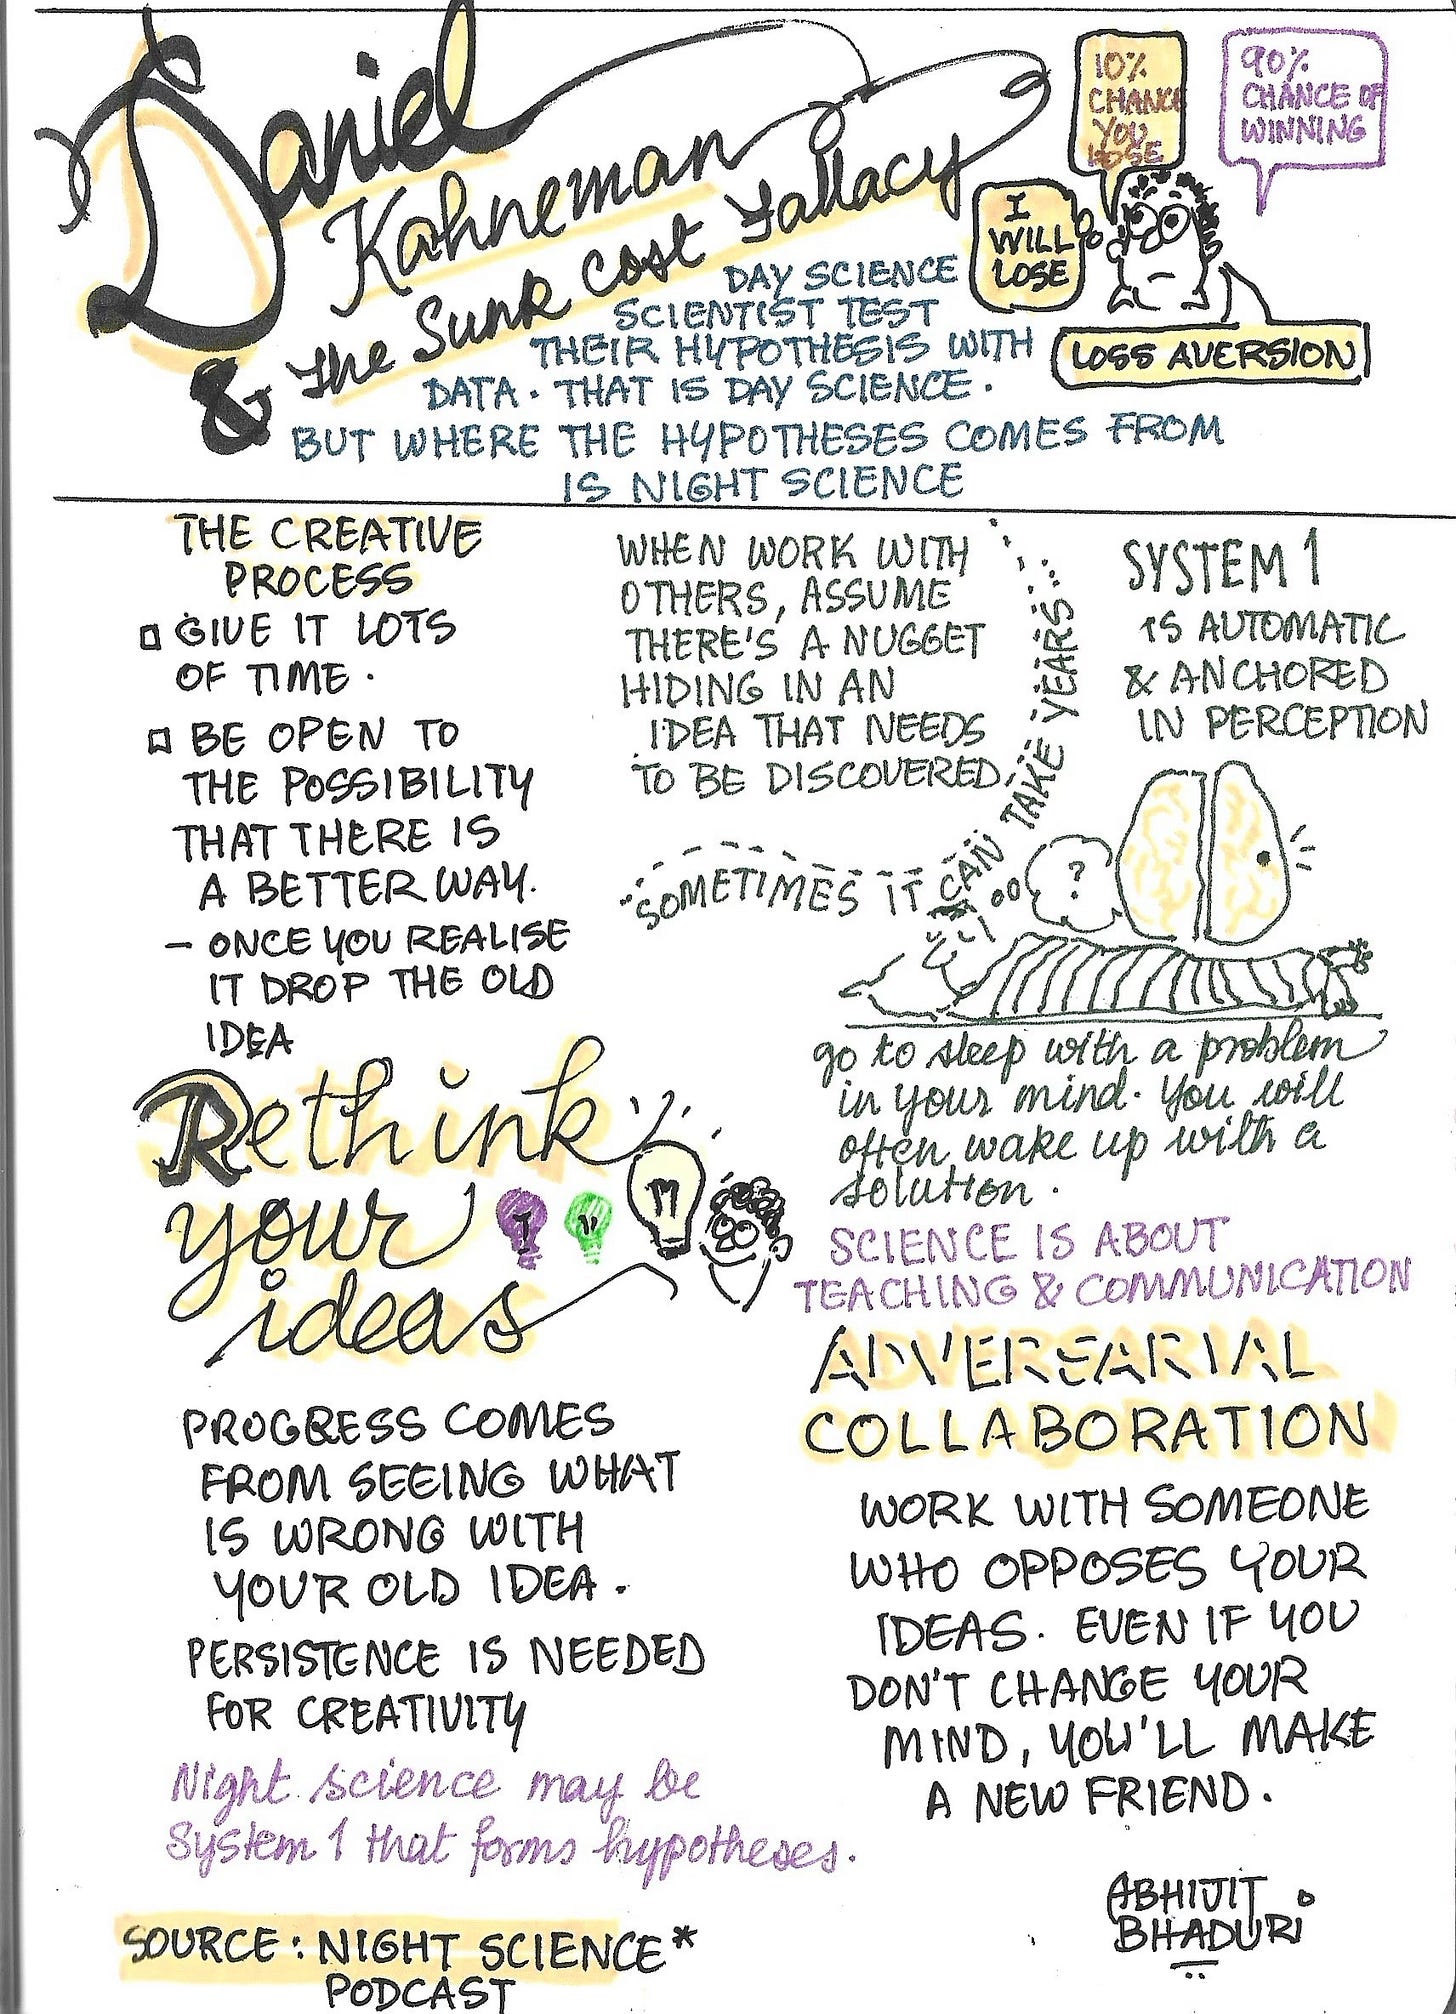 Daniel
Kahneman
& The Sunk Cost Fallacy
10%
CHANCE
YOU
LOSE
90%
CHANCE OF
WINNING
I
WILL
LOSE
LOSS AVERSION
DAY SCIENCE
SCIENTIST TEST
THEIR HYPOTHESIS WITH
DATA. THAT IS DAY SCIENCE.
BUT WHERE THE HYPOTHESES COMES FROM
IS NIGHT SCIENCE
THE CREATIVE
PROCESS
GIVE IT LOTS
OF TIME.
BE OPEN TO
THE POSSIBILITY
THAT THERE IS
A BETTER WAY.
- ONCE YOU REALISE
IT DROP THE OLD
IDEA
WHEN WORK WITH
OTHERS, ASSUME
THERE'S A NUGGET
HIDING IN AN
IDEA THAT NEEDS
TO BE DISCOVERED.
SOMETIMES IT CAN TAKE YEARS...
SYSTEM 1
IS AUTOMATIC
& ANCHORED
IN PERCEPTION
?
go to sleep with a problem
in your mind. You will
often wake up with a
solution.
Rethink
your
ideas
SCIENCE IS ABOUT
TEACHING & COMMUNICATION
ADVERSARIAL
COLLABORATION
WORK WITH SOMEONE
WHO OPPOSES YOUR
IDEAS. EVEN IF YOU
DON'T CHANGE YOUR
MIND, YOU'LL MAKE
A NEW FRIEND.
PROGRESS COMES
FROM SEEING WHAT
IS WRONG WITH
YOUR OLD IDEA.
PERSISTENCE IS NEEDED
FOR CREATIVITY
Night science may be
System 1 that forms hypotheses.
SOURCE: NIGHT SCIENCE*
PODCAST
ABHIJIT
BHADURI